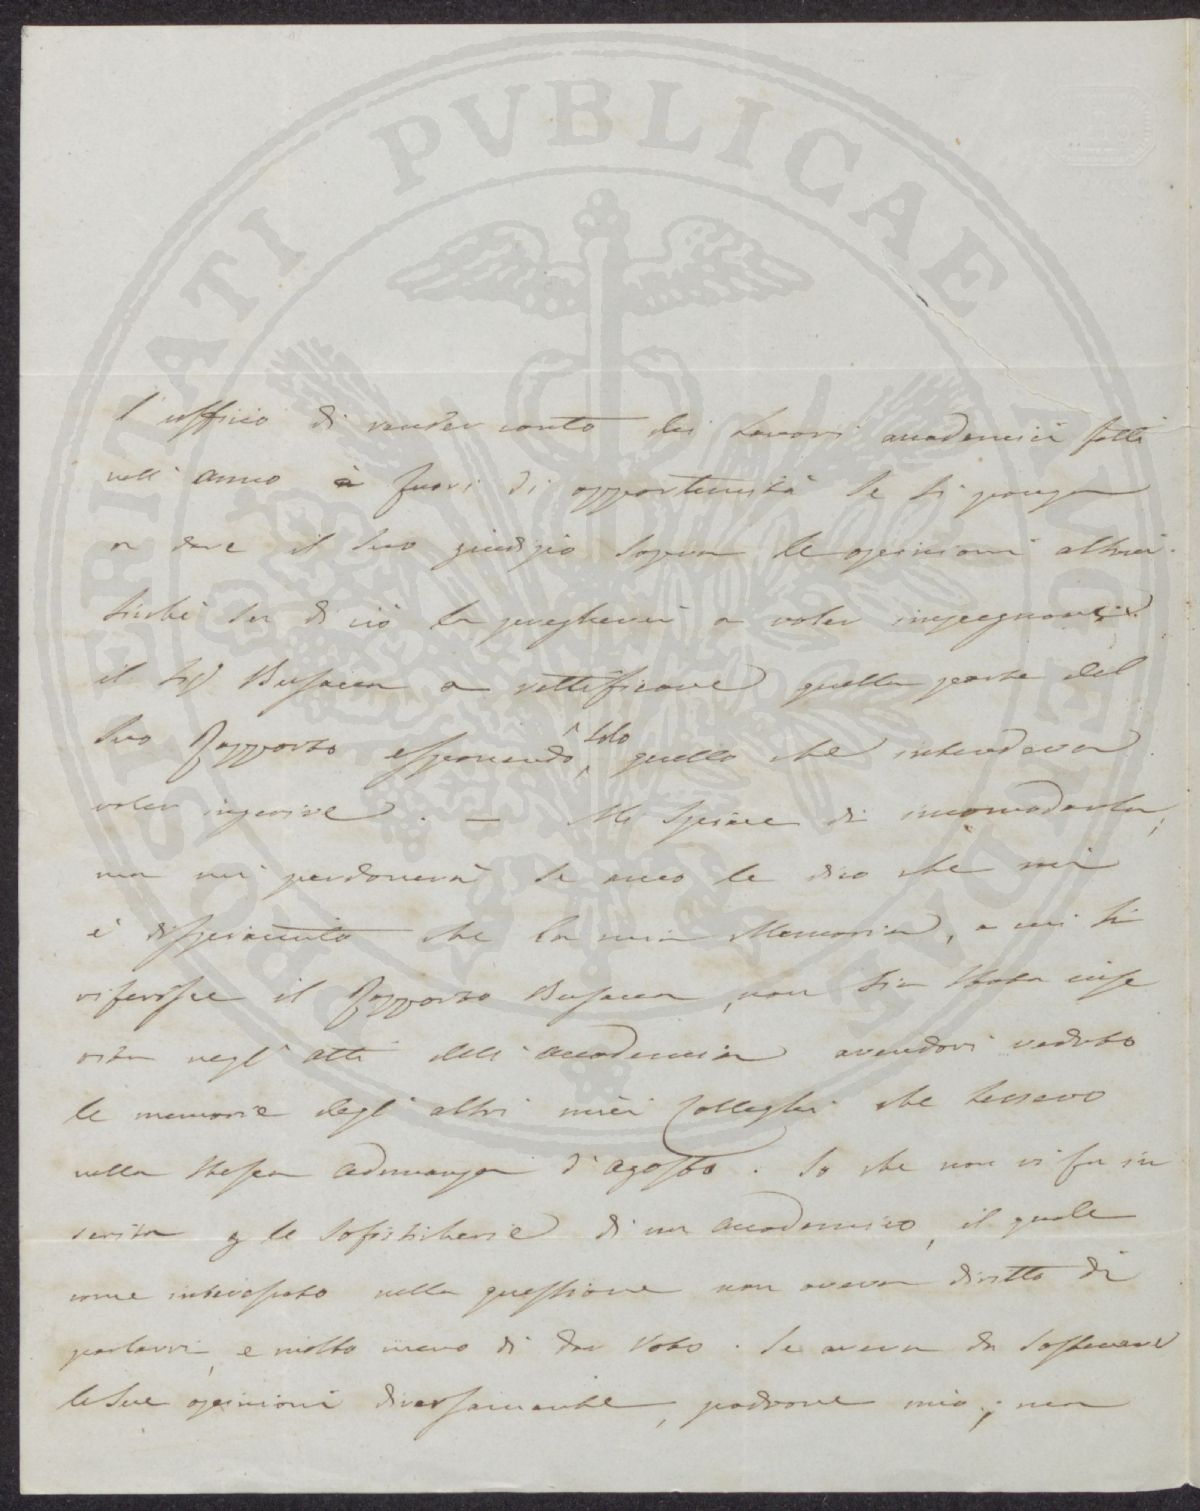 PROSPERITATI PVBLICAE AVGENDAE
l'uffizio di render conto dei lavori accademici fatti
nell'anno è fuori di opportunità se si ponga
a dare il suo giudizio sopra le opinioni altrui.
Sicché la di ciò la pregherei a voler impegnare
il Sig.r Busacca a rettificare quella parte del
suo Rapporto esponendo solo quello che intendeva
voler inserire. — Mi spiace di incomodarla,
ma mi perdonerà se anco le dico che mi
è dispiaciuto che la mia Memoria, a cui si
riferisce il Rapporto Busacca, non sia stata inse
rita negli atti dell'accademia avendovi veduto
le memorie degli altri miei Colleghi che lessero
nella stessa adunanza d'agosto. So che non vi fu in
serita p le sofisticherie di un accademico, il quale
come interessato nella questione non aveva diritto di
parlarvi, e molto meno di dar voto. Se aveva da sostenere
le sue opinioni diversamente, padrone mio; ma